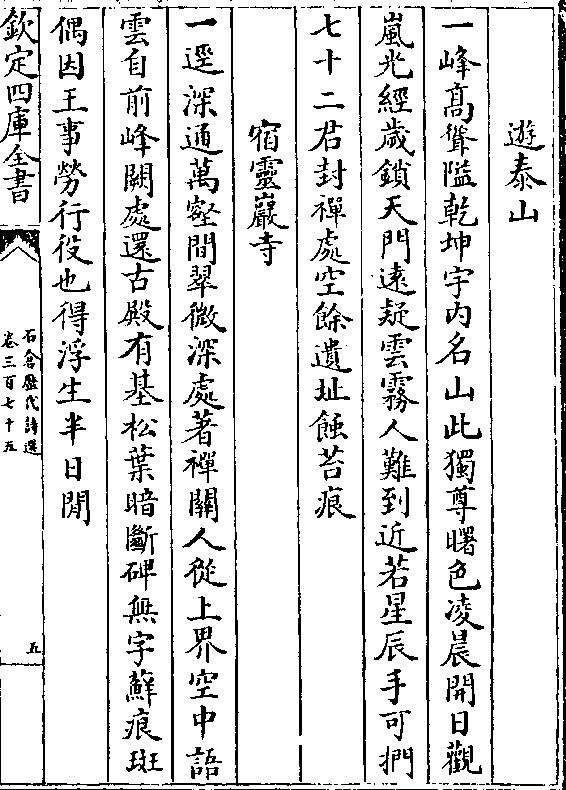 遊泰山
一峰髙聳隘乾坤宇内名山此獨尊曙色凌晨開日觀
嵐光經歲鎖天門遠疑雲霧人難到近若星辰手可捫
七十二君封禪處空餘遺址蝕苔痕
宿靈巖寺
一逕深通萬壑間翠微深處著禪關人從上界空中語
雲自前峰闕處還古殿有基松葉暗斷碑無字蘚痕斑
偶因王事勞行役也得浮生半日閒
欽定四庫全書
石倉歷代詩選
卷三百七十五
五